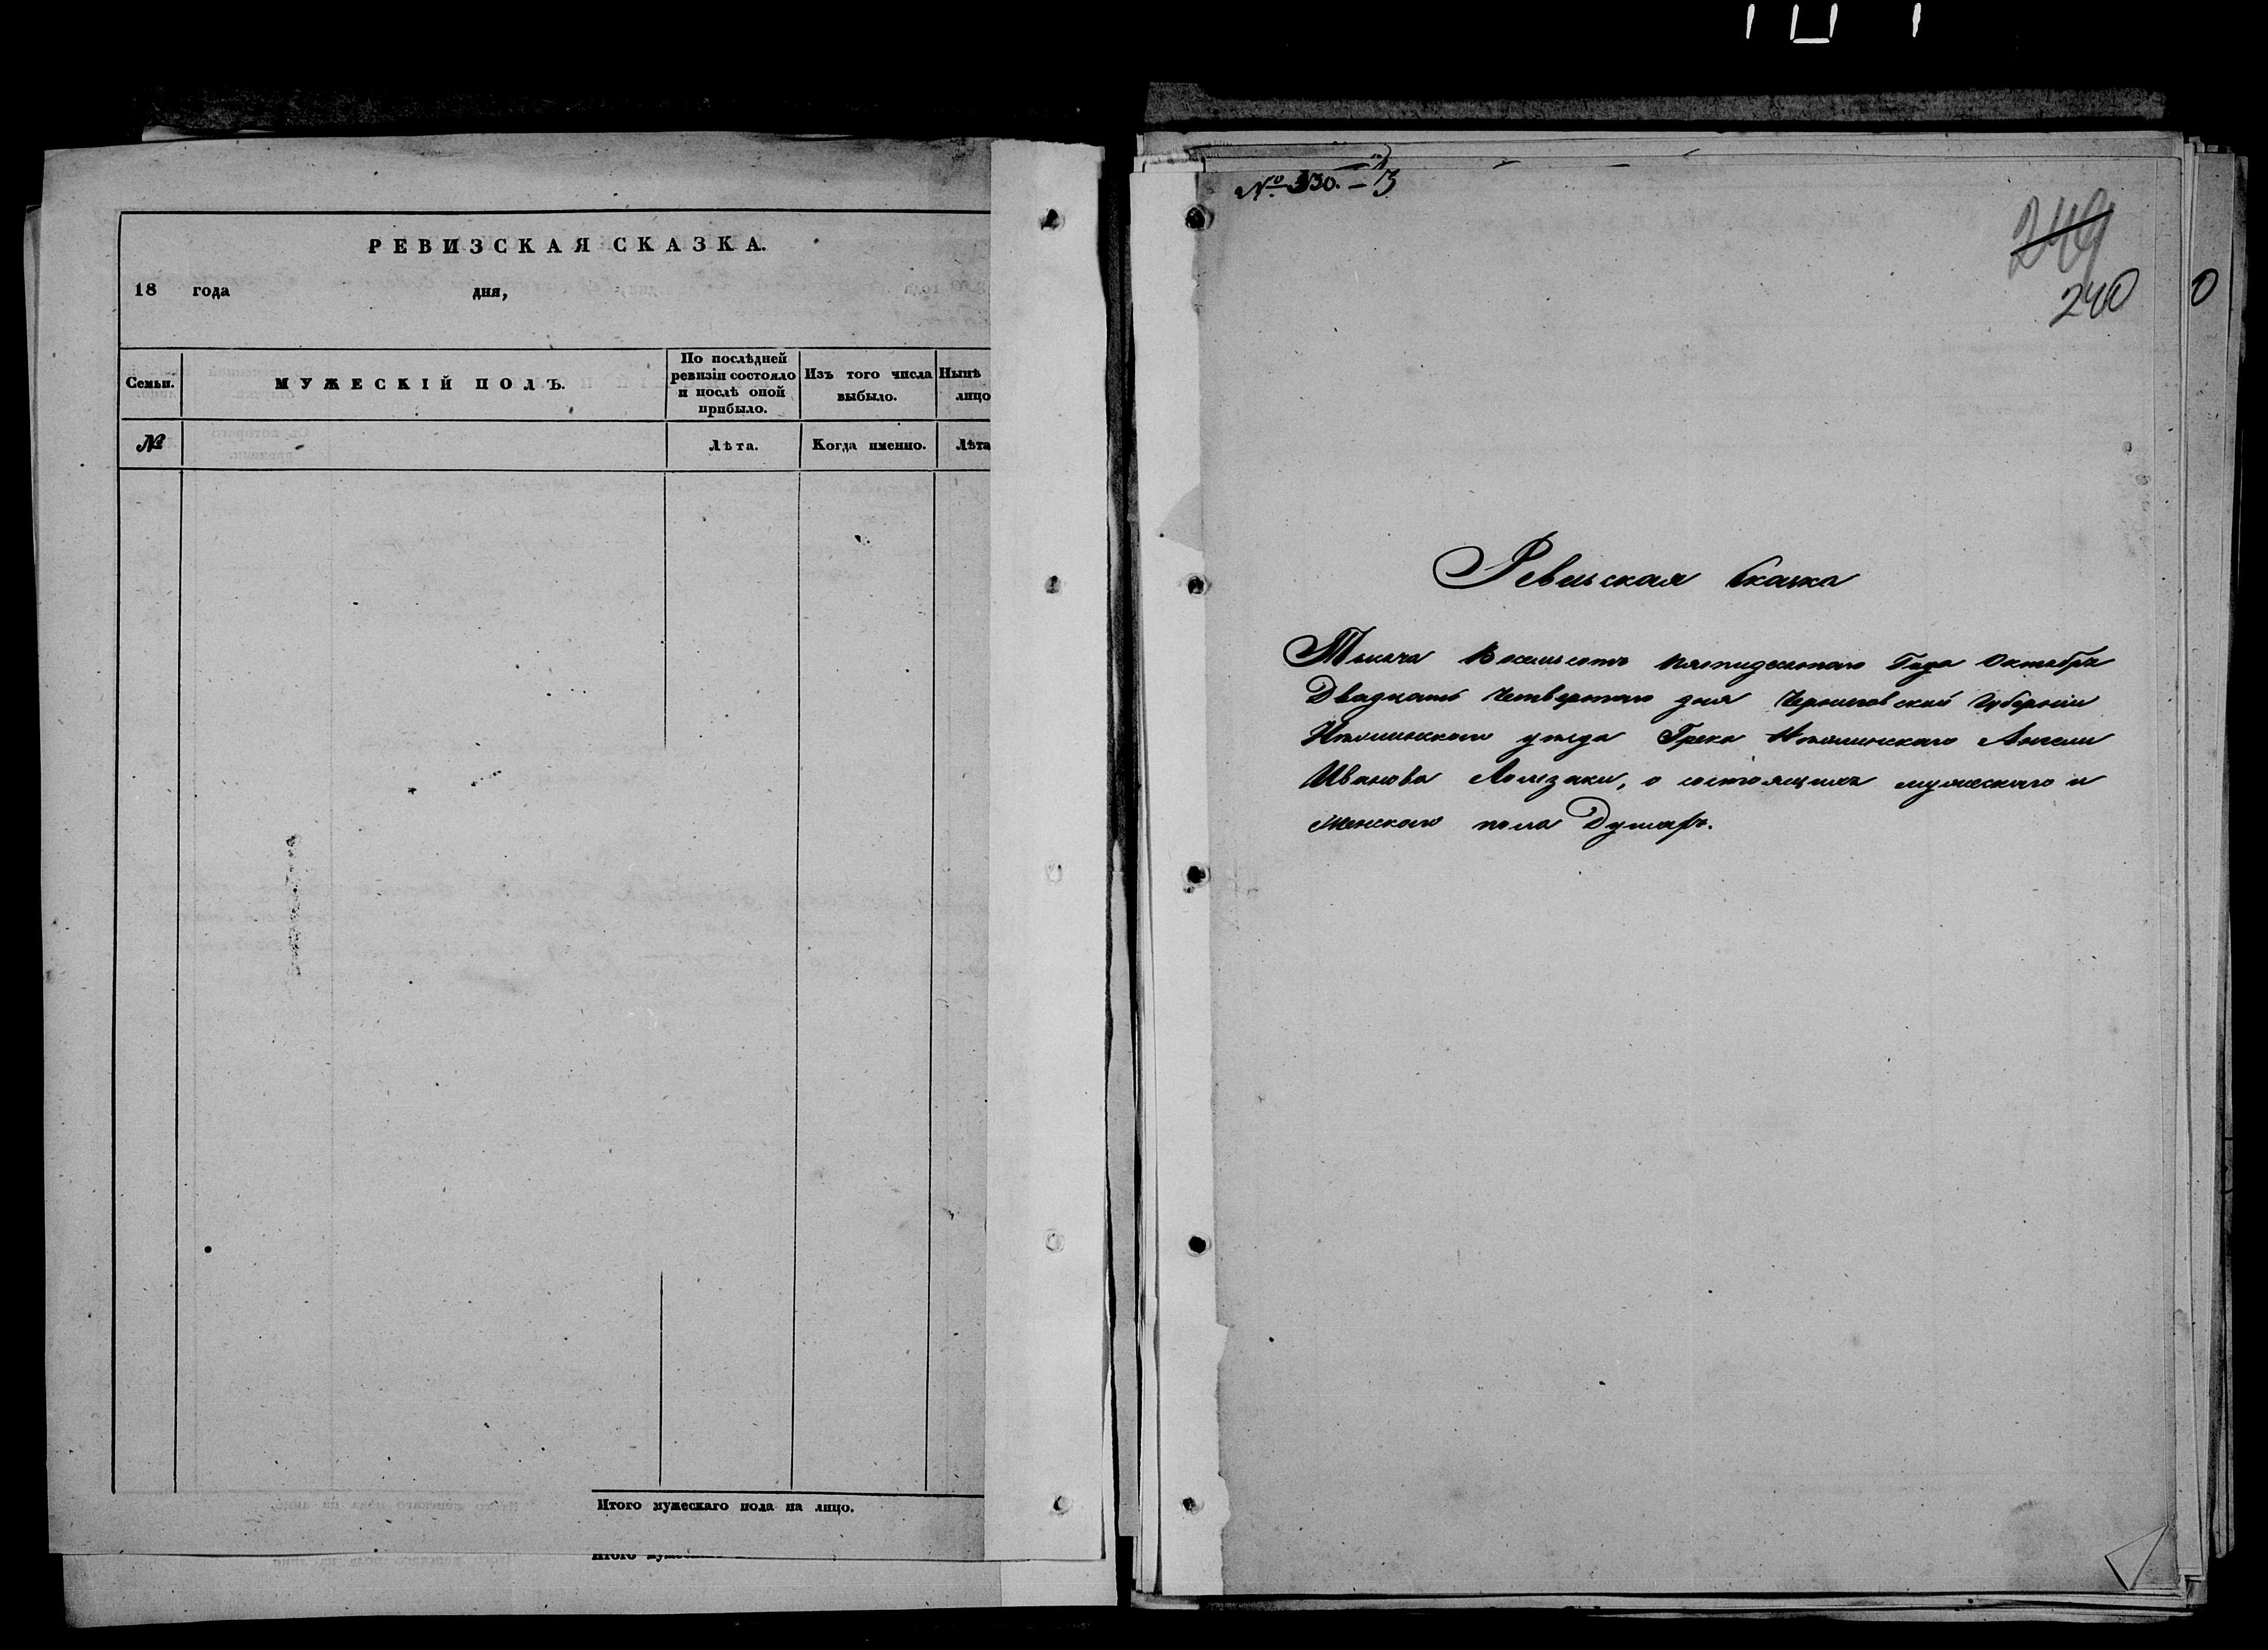 РЕВИЗСКАЯ СКАЗКА.
18 года дня,
Семьи.
МУЖЕСКІЙ ПОЛЪ.
По послѣдней
ревизіи состояло
и послѣ оной
прибыло.
Изъ того числа
выбыло.
Нынѣ
лицо
№
Лѣта.
Когда именно.
Лѣта
Итого мужескаго пола на лицо.
№ 330. — 3
249
240
0
Ревизская Сказка
Тысяча Восемьсотъ пятидесятаго Года Октября
Двадцать Четвертаго дня Черниговской Губерніи
Нѣжинскаго уѣзда Грека Нѣжинскаго
Иванова, о состоящихъ мужескаго и
Женскаго пола Душахъ.